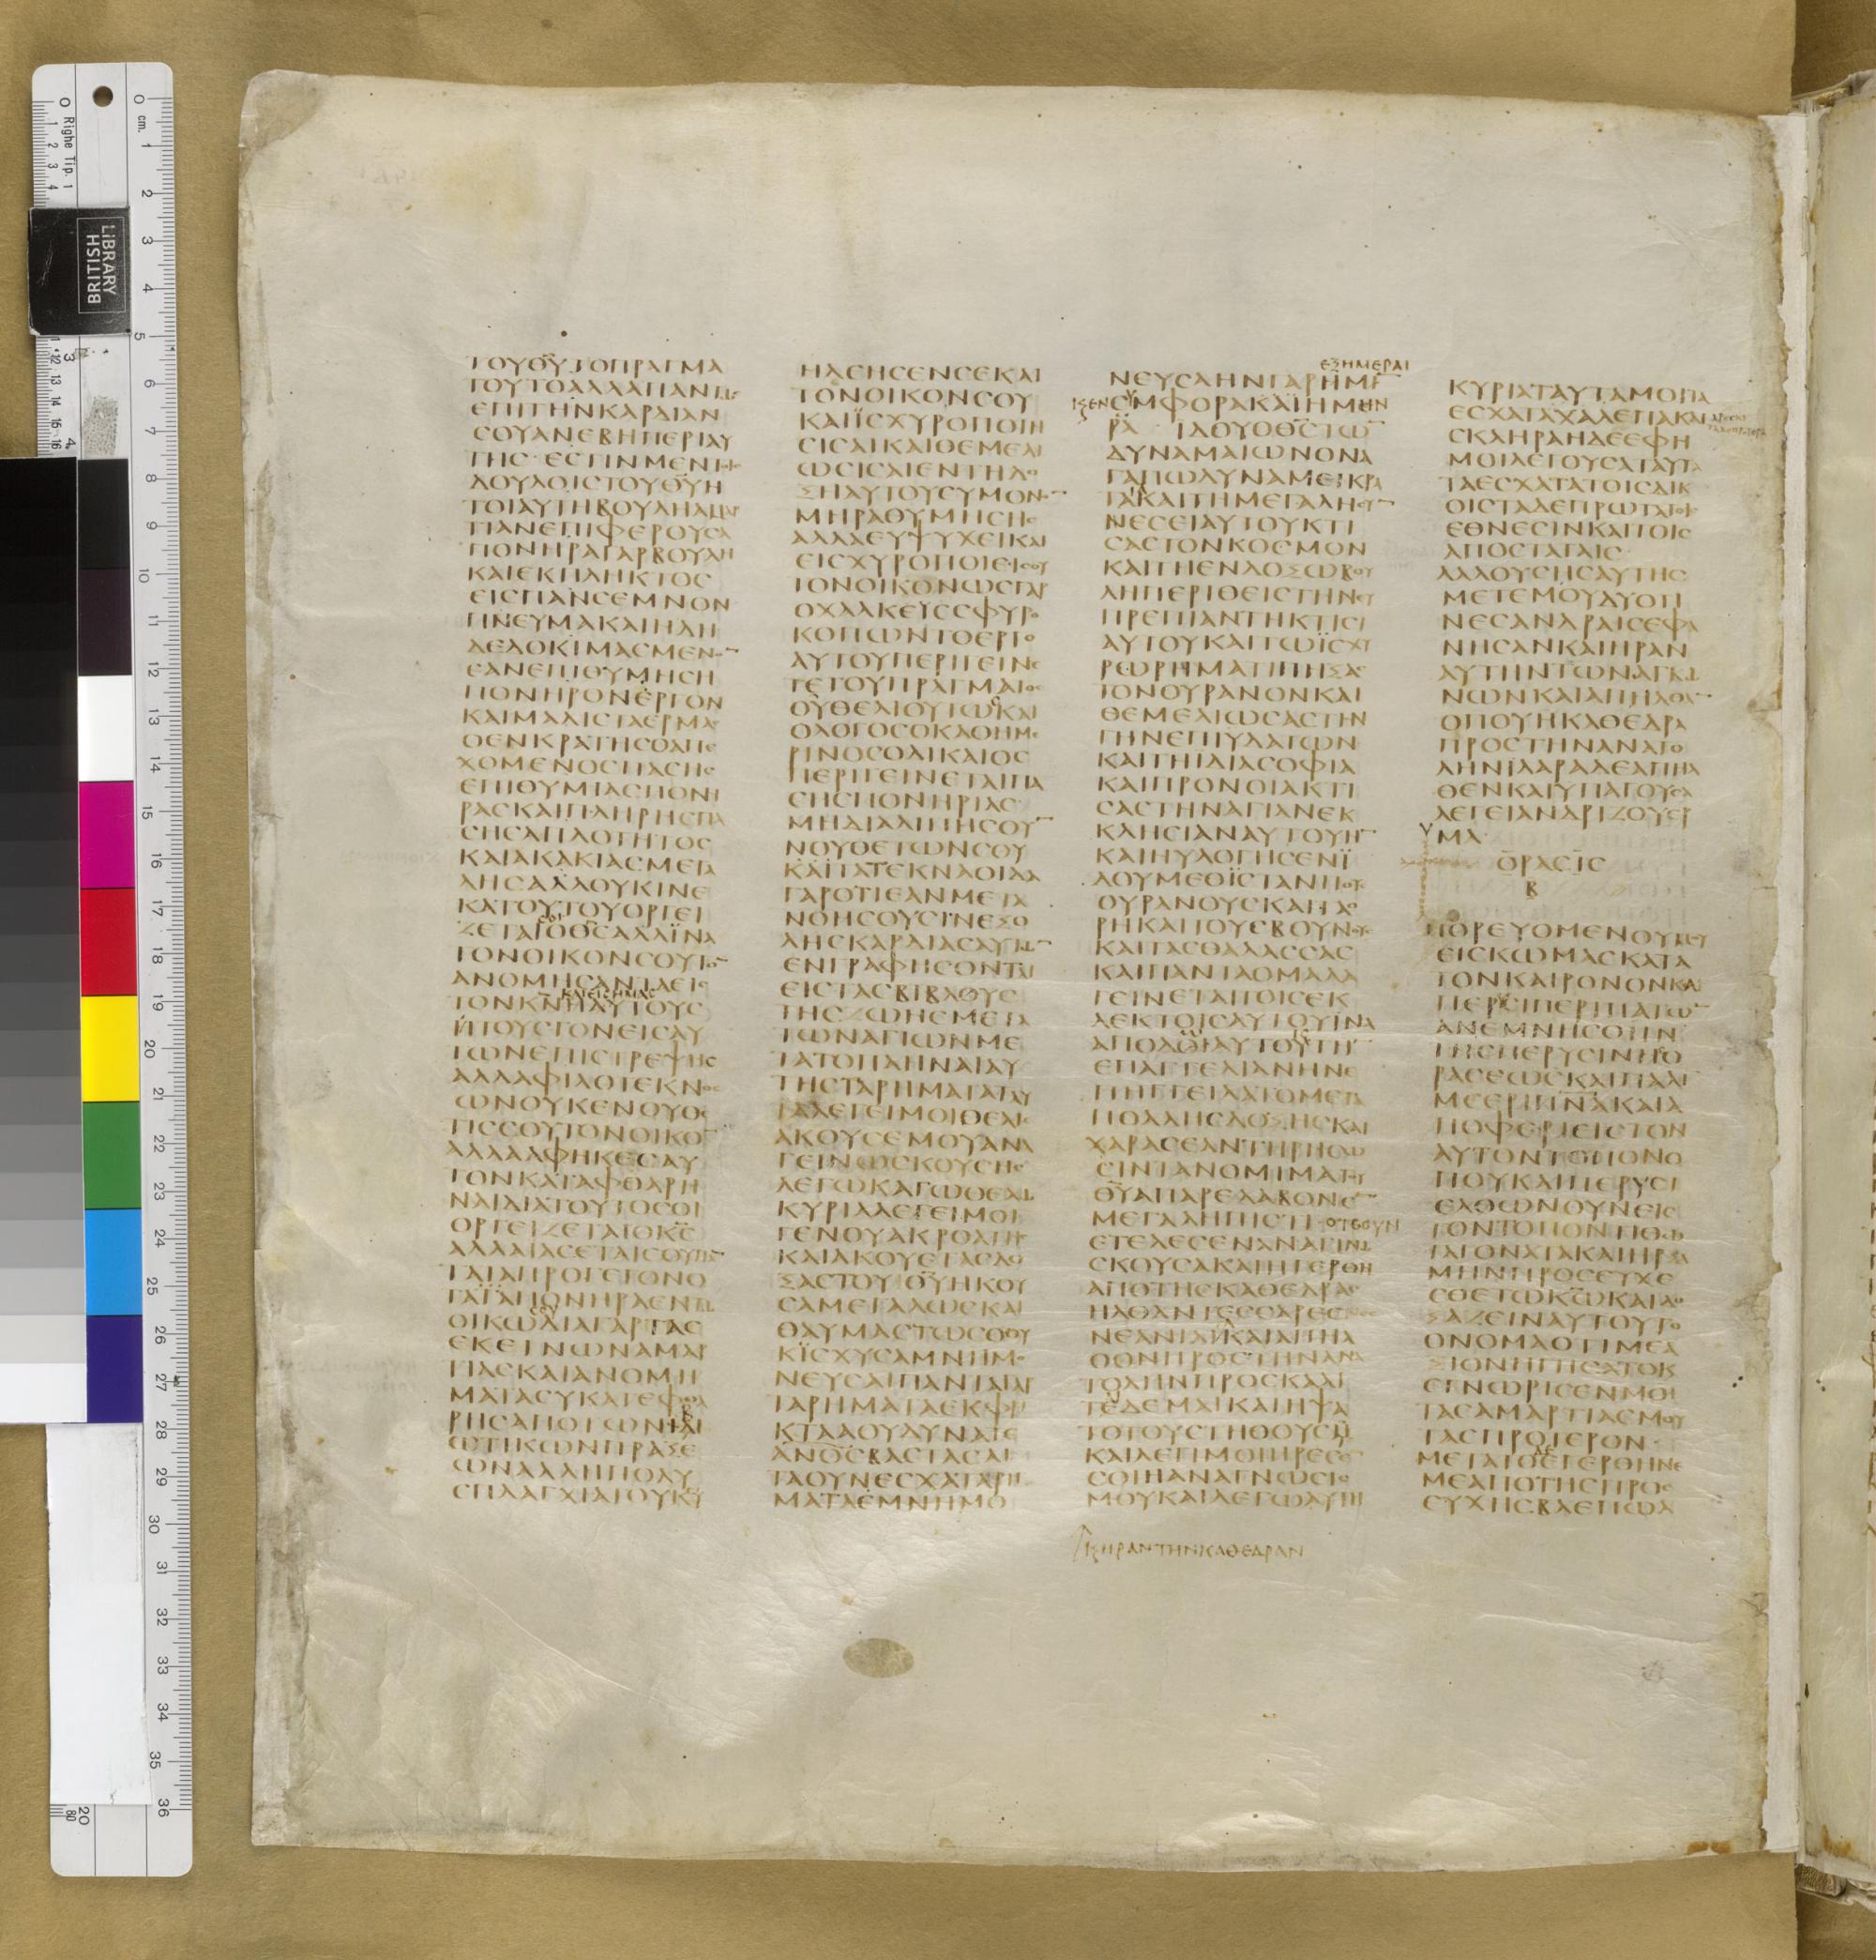 ΤΟΥΘΥΤΟΠΡΑΓΜΑ
ΤΟΥΤΟΑΛΛΑΠΑΝΤΩϹ
ΕΠΙΤΗΝΚΑΡΔΙΑΝ
ϹΟΥΑΝΕΒΗΠΕΡΙΑΥ
ΤΗϹ·ΕϹΤΙΝΜΕΝΤΟΙϹ
ΔΟΥΛΟΙϹΤΟΥΘΥΗ
ΤΟΙΑΥΤΗΒΟΥΛΗΑΜΑΡ
ΤΙΑΝΕΠΙΦΕΡΟΥϹΑ
ΠΟΝΗΡΑΓΑΡΒΟΥΛΗ
ΚΑΙΕΚΠΛΗΚΤΟϹ
ΕΙϹΠΑΝϹΕΜΝΟΝ
ΠΝΕΥΜΑΚΑΙΗΔΗ
ΔΕΔΟΚΙΜΑϹΜΕΝΟ̅
ΕΑΝΕΠΙΘΥΜΗϹΗ
ΠΟΝΗΡΟΝΕΡΓΟΝ
ΚΑΙΜΑΛΙϹΤΑΕΡΜΑϹ
ΟΕΝΚΡΑΤΗϹΟΑΠΕ
ΧΟΜΕΝΟϹΠΑϹΗϹ
ΕΠΙΘΥΜΙΑϹΠΟΝΗ
ΡΑϹΚΑΙΠΛΗΡΗϹΠΑ
ϹΗϹΑΠΛΟΤΗΤΟϹ
ΚΑΙΑΚΑΚΙΑϹΜΕΓΑ
ΛΗϹΑΛΛΟΥΚΙΝΕ
ΚΑΤΟΥΤΟΥΟΡΓΕΙ
ΖΕΤΑΙϹΟΙΟΘϹΑΛΛΪΝΑ
ΤΟΝΟΙΚΟΝϹΟΥΤΟ̅
ΑΝΟΜΗϹΑΝΤΑΕΙϹ
ΚΑΙΕΙϹΗΜΑϹ
ΤΟΝΚΝΚΑΙΑΥΤΟΥϹ
ΤΟΥϹΓΟΝΕΙϹΑΥ
ΤΩΝΕΠΙϹΤΡΕΨΗϹ
ΑΛΛΑΦΙΛΟΤΕΚΝΟϹ
ΩΝΟΥΚΕΝΟΥΘΕ
ΤΙϹϹΟΥΤΟΝΟΙΚΟ̅
ΑΛΛΑΑΦΗΚΕϹΑΥ
ΤΟΝΚΑΤΑΦΘΑΡΗ
ΝΑΙΔΙΑΤΟΥΤΟϹΟΙ
ΟΡΓΕΙΖΕΤΑΙΟΚϹ
ΑΛΛΑΪΑϹΕΤΑΙϹΟΥΠΑ̅
ΤΑΤΑΠΡΟΓΕΓΟΝΟ
ΤΑΪΑΠΟΝΗΡΑΕΝΤΩ
ΟΙΚΩϹΟΥΔΙΑΓΑΡΤΑϹ
ΕΚΕΙΝΩΝΑΜΑΡ
ΤΙΑϹΚΑΙΑΝΟΜΗ
ΜΑΤΑϹΥΚΑΤΕΦΘΑ
ΡΗϹΑΠΟΤΩΝΒΙ
ΩΤΙΚΩΝΠΡΑΞΕ
ΩΝΑΛΛΗΠΟΛΥ
ϹΠΛΑΓΧΙΑΤΟΥΚΥ
ΗΛΕΗϹΕΝϹΕΚΑΙ
ΤΟΝΟΙΚΟΝϹΟΥ
ΚΑΙΪϹΧΥΡΟΠΟΙΗ
ϹΙϹΑΙΚΑΙΘΕΜΕΛΙ
ΩϹΙϹΑΙΕΝΤΗΔΟ
ΞΗΑΥΤΟΥϹΥΜΟΝΟ̅
ΜΗΡΑΘΥΜΗϹΗϹ
ΑΛΛΑΕΥΨΥΧΕΙΚΑΙ
ΕΙϹΧΥΡΟΠΟΙΕΙϹΟΥ
ΤΟΝΟΙΚΟΝΩϹΓΑΡ
ΟΧΑΛΚΕΥϹϹΦΥΡΟ
ΚΟΠΩΝΤΟΕΡΓΟ
ΑΥΤΟΥΠΕΡΙΓΕΙΝΕ
ΤΕΤΟΥΠΡΑΓΜΑΤΟϹ
ΟΥΘΕΛΙΟΥΤΩϹΚΑΙ
ΟΛΟΓΟϹΟΚΑΘΗΜΕ
ΡΙΝΟϹΟΔΙΚΑΙΟϹ
ΠΕΡΙΓΕΙΝΕΤΑΙΠΑ
ϹΗϹΠΟΝΗΡΙΑϹ
ΜΗΔΙΑΛΙΠΗϹΟΥ̅
ΝΟΥΘΕΤΩΝϹΟΥ
ΚΑΙΤΑΤΕΚΝΑΟΙΔΑ
ΓΑΡΟΤΙΕΑΝΜΕΤΑ
ΝΟΗϹΟΥϹΙΝΕΞΟ
ΛΗϹΚΑΡΔΙΑϹΑΥΤΩ̅
ΕΝΓΡΑΦΗϹΟΝΤΑΙ
ΕΙϹΤΑϹΒΙΒΛΟΥϹ
ΤΗϹΖΩΗϹΜΕΤΑ
ΤΩΝΑΓΙΩΝΜΕ
ΤΑΤΟΠΑΗΝΑΙΑΥ
ΤΗϹΤΑΡΗΜΑΤΑΤΑΥ
ΤΑΛΕΓΕΙΜΟΙΘΕΛΙϹ
ΑΚΟΥϹΕΜΟΥΑΝΑ
ΓΕΙΝΩϹΚΟΥϹΗϹ
ΛΕΓΩΚΑΓΩΘΕΛΩ
ΚΥΡΙΑΛΕΓΕΙΜΟΙ
ΓΕΝΟΥΑΚΡΟΑΤΗϹ
ΚΑΙΑΚΟΥΕΤΑϹΔΟ
ΞΑϹΤΟΥΘΥΗΚΟΥ
ϹΑΜΕΓΑΛΩϹΚΑΙ
ΘΑΥΜΑϹΤΩϹΟΟΥ
ΚΙϹΧΥϹΑΜΝΗΜΟ
ΝΕΥϹΑΙΠΑΝΤΑΓΑΡ
ΤΑΡΗΜΑΤΑΕΚΦΡΙ
ΚΤΑΑΟΥΔΥΝΑΤΕ
ΑΝΟϹΒΑϹΤΑϹΑΙ
ΤΑΟΥΝΕϹΧΑΤΑΡΗ
ΜΑΤΑΕΜΝΗΜΟ
ΕΞΗΜΕΡΑΙ
ΝΕΥϹΑΗΝΓΑΡΗΜΙ̅
ϹΥΜΦΟΡΑΚΑΙΗΜΩΝ
ΡΑ ΙΔΟΥΟΘϹΤΩ̅
ΔΥΝΑΜΑΙΩΝΟΝΑ
ΓΑΠΩΔΥΝΑΜΕΙΚΡΑ
ΤΑΚΑΙΤΗΜΕΓΑΛΗϹΥ̅
ΝΕϹΕΙΑΥΤΟΥΚΤΙ
ϹΑϹΤΟΝΚΟϹΜΟΝ
ΚΑΙΤΗΕΝΔΟΞΩΒΟΥ
ΛΗΠΕΡΙΘΕΙϹΤΗΝΕΥ
ΠΡΕΠΙΑΝΤΗΚΤΙϹΙ
ΑΥΤΟΥΚΑΙΤΩΪϹΧΥ
ΡΩΡΗΜΑΤΙΠΗΞΑϹ
ΤΟΝΟΥΡΑΝΟΝΚΑΙ
ΘΕΜΕΛΙΩϹΑϹΤΗΝ
ΓΗΝΕΠΙΥΔΑΤΩΝ
ΚΑΙΤΗΙΔΙΑϹΟΦΙΑ
ΚΑΙΠΡΟΝΟΙΑΚΤΙ
ϹΑϹΤΗΝΑΓΙΑΝΕΚ
ΚΛΗϹΙΑΝΑΥΤΟΥΗ̅
ΚΑΙΗΥΛΟΓΗϹΕΝΪ
ΔΟΥΜΕΘΪϹΤΑΝΙΤΟΥϹ
ΟΥΡΑΝΟΥϹΚΑΙΤΑΟ
ΡΗΚΑΙΤΟΥϹΒΟΥΝΟΥϹ
ΚΑΙΤΑϹΘΑΛΑϹϹΑϹ
ΚΑΙΠΑΝΤΑΟΜΑΛΑ
ΓΕΙΝΕΤΑΙΤΟΙϹΕΚ
ΛΕΚΤΟΙϹΑΥΤΟΥΪΝΑ
ΑΠΟΔΩΑΥΤΟΙϹΤΗ̅
ΕΠΑΓΓΕΛΙΑΝΗΝΕ
ΠΗΓΓΕΙΛΑΤΟΜΕΤΑ
ΠΟΛΛΗϹΔΟΞΗϹΚΑΙ
ΧΑΡΑϹΕΑΝΤΗΡΗϹΩ
ϹΙΝΤΑΝΟΜΙΜΑΤΟΥ
ΘΥΑΠΑΡΕΛΑΒΟΝΕ̅
ΜΕΓΑΛΗΠΙϹΤΙ ΟΤΕΟΥΝ
ΕΤΕΛΕϹΕΝΑΝΑΓΙΝΩ
ϹΚΟΥϹΑΚΑΙΗΓΕΡΘΗ
ΑΠΟΤΗϹΚΑΘΕΔΡΑϹ
ΗΛΘΑΝΤΕϹϹΑΡΕϹ
ΝΕΑΝΙΑΙΚΑΙΑΠΗΛ
ΘΟΝΠΡΟϹΤΗΝΑΝΑ
ΤΟΛΗΝΠΡΟϹΚΑΛΙ
ΤΕΔΕΜΑΙΚΑΙΗΨΑ
ΤΟΤΟΥϹΤΗΘΟΥϹΜΟΥ
ΚΑΙΛΕΓΙΜΟΙΗΡΕϹΕ̅
ϹΟΙΗΑΝΑΓΝΩϹΙϹ
ΜΟΥΚΑΙΛΕΓΩΑΥΤΗ
ΗΡΑΝΤΗΝΚΑΘΕΔΡΑΝ
ΚΥΡΙΑΤΑΥΤΑΜΟΙΤΑ
ΕϹΧΑΤΑΧΑΛΕΠΑΚΑΙ
ϹΚΛΗΡΑΗΔΕΕΦΗ
ΜΟΙΛΕΓΟΥϹΑΤΑΥΤΑ
ΤΑΕϹΧΑΤΑΤΟΙϹΔΙΚ
ΟΙϹΤΑΔΕΠΡΩΤΑΤΟΙϹ
ΕΘΝΕϹΙΝΚΑΙΤΟΙϹ
ΑΠΟϹΤΑΤΑΙϹ
ΛΑΛΟΥϹΗϹΑΥΤΗϹ
ΜΕΤΕΜΟΥΔΥΟΤΙ
ΝΕϹΑΝΔΡΑΙϹΕΦΑ
ΝΗϹΑΝΚΑΙΗΡΑΝ
ΑΥΤΗΝΤΩΝΑΓΚΩ
ΝΩΝΚΑΙΑΠΗΛΘΑ̅
ΟΠΟΥΗΚΑΘΕΔΡΑ
ΠΡΟϹΤΗΝΑΝΑΤΟ
ΛΗΝΪΛΑΡΑΔΕΑΠΗΛ
ΘΕΝΚΑΙΥΠΑΓΟΥϹΑ
ΛΕΓΕΙΑΝΔΡΙΖΟΥΕΡ
ΜΑ
ΟΡΑϹΙϹ
Β
ΠΟΡΕΥΟΜΕΝΟΥΜΟΥ
ΕΙϹΚΩΜΑϹΚΑΤΑ
ΤΟΝΚΑΙΡΟΝΟΝΚΑΙ
ΠΕΡΥϹΙΠΕΡΙΠΑΤΩ̅
ΑΝΕΜΝΗϹΘΗΝ
ΤΗϹΠΕΡΥϹΙΝΗϹΟ
ΡΑϹΕΩϹΚΑΙΠΑΛΙ̅
ΜΕΕΡΙΠΝΑΚΑΙΑ
ΠΟΦΕΡΙΕΙϹΤΟΝ
ΑΥΤΟΝΤΟΠΟΝΟ
ΠΟΥΚΑΙΠΕΡΥϹΙ
ΕΛΘΩΝΟΥΝΕΙϹ
ΤΟΝΤΟΠΟΝΤΙΘΩ
ΤΑΓΟΝΑΤΑΚΑΙΗΡΞΑ
ΜΗΝΠΡΟϹΕΥΧΕ
ϹΘΕΤΩΚΩΚΑΙΔΟ
ΞΑΖΕΙΝΑΥΤΟΥΤΟ
ΟΝΟΜΑΟΤΙΜΕΑ
ΞΙΟΝΗΓΗϹΑΤΟΚ
ΕΓΝΩΡΙϹΕΝΜΟΙ
ΤΑϹΑΜΑΡΤΙΑϹΜΟΥ
ΤΑϹΠΡΟΤΕΡΟΝ·
ΜΕΤΑΤΟΔΕΕΓΕΡΘΗΝΕ
ΜΕΑΠΟΤΗϹΠΡΟϹ
ϹΥΧΗϹΒΛΕΠΩΑ
BRITISH
LIBRARY